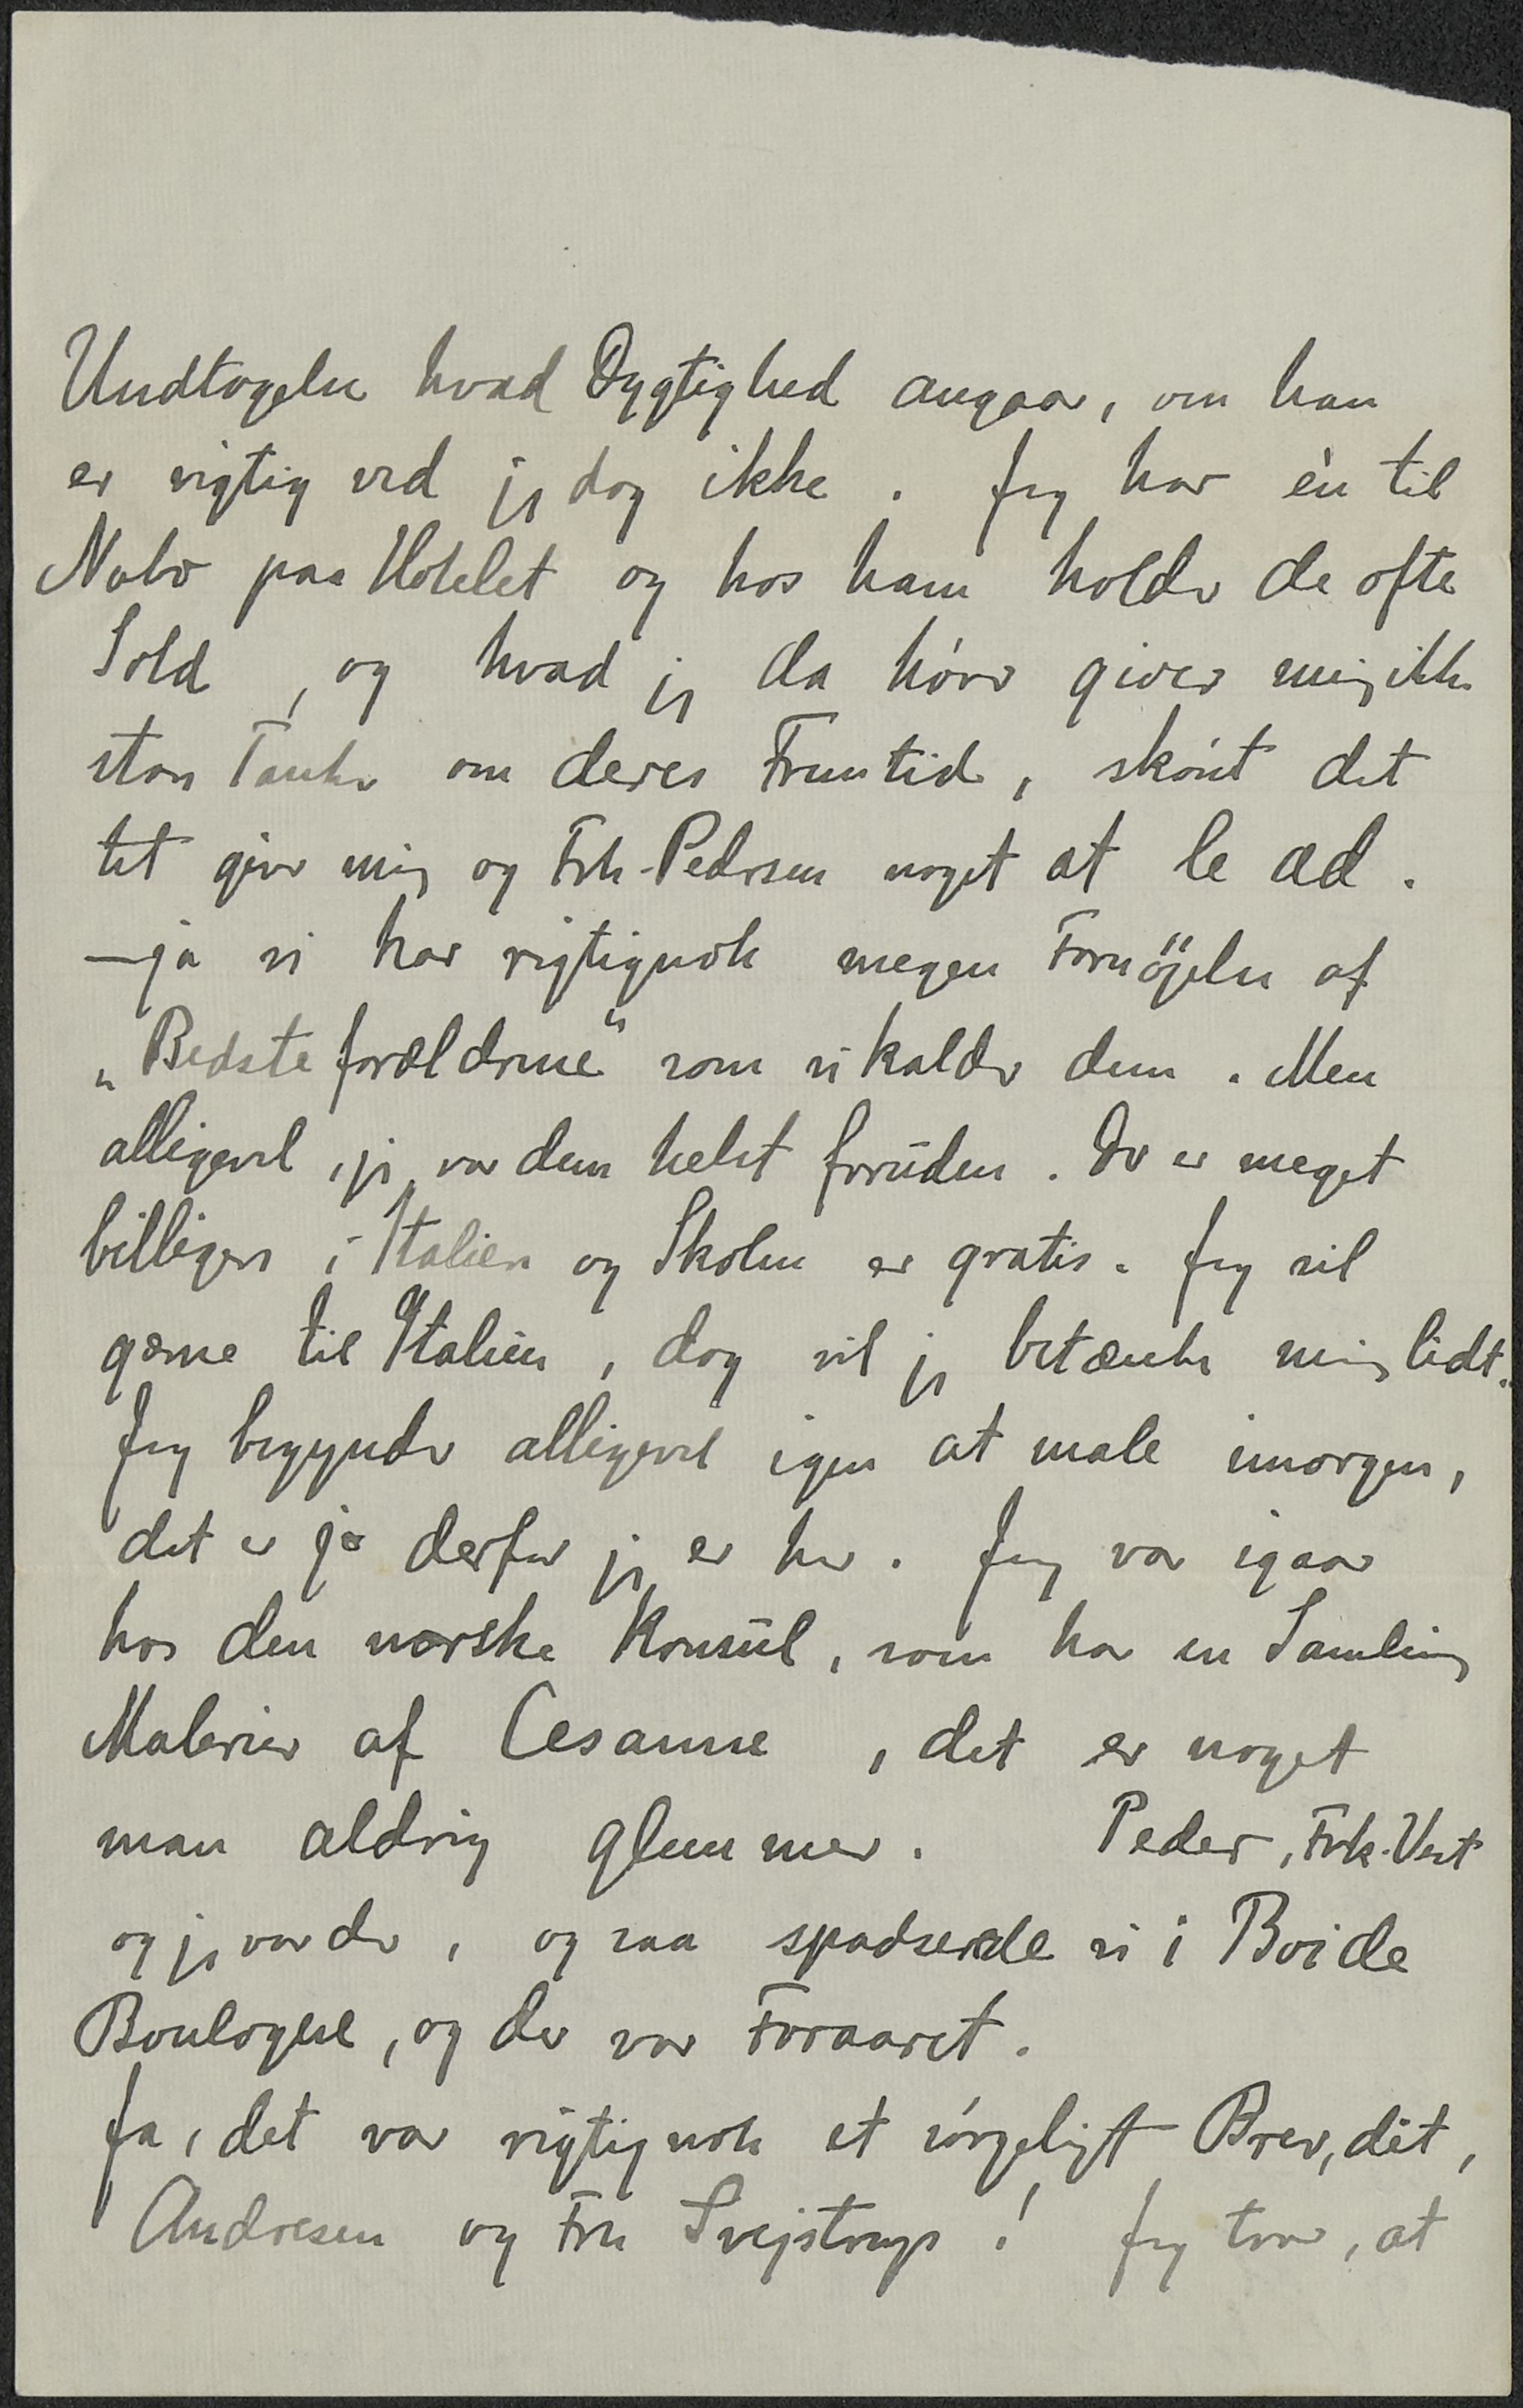 Undtagelse hvad Dygtighed angaar, om han
er vigtig ved jeg dog ikke. Jeg har én til
Nabo paa Hotelet og hos ham holder de ofte
Sold, og hvad jeg da hører giver mig ikke
store Tanker om deres Fremtid, skönt det
tit giver mig og Frk. Pedersen noget at le ad.
– ja vi har rigtignok megen Fornöjelse af
„Bedsteforældrene" som vi kalder dem. Men
alligevel, jeg var dem helst foruden. Der er meget
billigere i Italien og Skolen er gratis. Jeg vil
gerne til Italien, dog vil jeg betænke mig lidt.
Jeg begynder alligevel igen at male imorgen,
det er jo derfor jeg er her. Jeg var igaar
hos den norske Konsul, som har en Samling
Malerier af Cesanne, det er noget
man aldrig glemmer. Peder, Frk. Vest
og jeg var der, og saa spadserede vi i Boi de
Boulogne, og der var Foraaret.
Ja, det var rigtignok et sörgeligt Brev, dét,
Andresen og Fru Svejstrup! Jeg tror, at